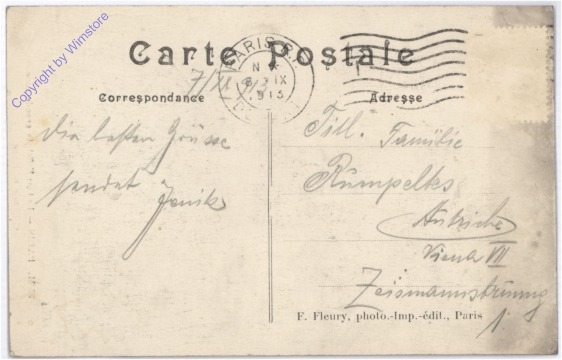 Copyright by Wimstore
Carte Postale
PARIS
IX
Correspondance
Adresse
die besten Grüsse
sendet
Titl. Familie
Rumpelks
Autriche
Vienna VII
1.
F. Fleury, photo.-Imp.-édit., Paris